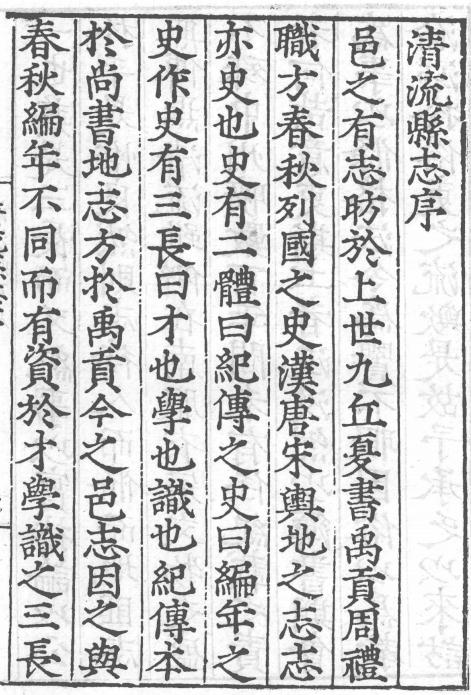 清流縣志序
邑之有志昉於上世九丘夏書禹貢周禮
職方春秋列國之史漢唐宋輿地之志志
亦史也史有二體曰紀傳之史曰編年之
史作史有三長曰才也學也識也紀傳本
於尚書地志方於禹貢今之邑志因之與
春秋編年不同而有資於才學識之三長